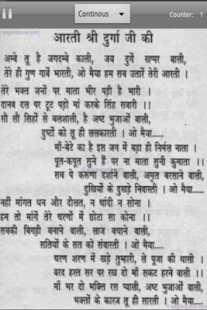 Continous
Counter: 1
आरती श्री दुर्गा जी की
अम्बे तू है जगदम्बे काली, जय दुर्गे खप्पर वाली,
तेरे ही गुण गावें भारती, ओ मैया हम सब उतारें तेरी आरती ।
तेरे भक्त जनों पर माता भीर पड़ी है भारी ।
दानव दल पर टूट पड़ो मां करके सिंह सवारी ।।
सौ सौ सिंहों से बलशाली, है अष्ट भुजाओं वाली,
दुष्टों को तू ही ललकारती । ओ मैया.....
माँ-बेटे का है इस जग में बड़ा ही निर्मल नाता ।
पूत-कपूत सुने हैं पर ना माता सुनी कुमाता ।।
सब पे करूणा दर्शाने वाली, अमृत बरसाने वाली,
दुखियों के दुखड़े निवारती । ओ मैया....
नहीं मांगते धन और दौलत, न चांदी न सोना ।
हम तो मांगें तेरे चरणों में छोटा सा कोना ।।
सबकी बिगड़ी बनाने वाली, लाज बचाने वाली,
सतियों के सत को संवारती । ओ मैया....
चरण शरण में खड़े तुम्हारी, ले पूजा की थाली ।
वरद हस्त सर पर रख दो माँ सकट हरने वाली ।।
माँ भर दो भक्ति रस प्याली, अष्ट भुजाओं वाली,
भक्तों के कारज तू ही सारती । ओ मैया....